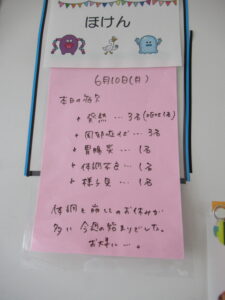 ほけん
6月10日(月)
本日の欠
+ 発熱 … 3名
+ 風邪症状 … 3名
+ 胃腸炎 … 1名
+ 体調不良 … 1名
+ 様子見 … 1名
体調を崩してのお休みが
多い 今週の始まりでした。
お大事に…。